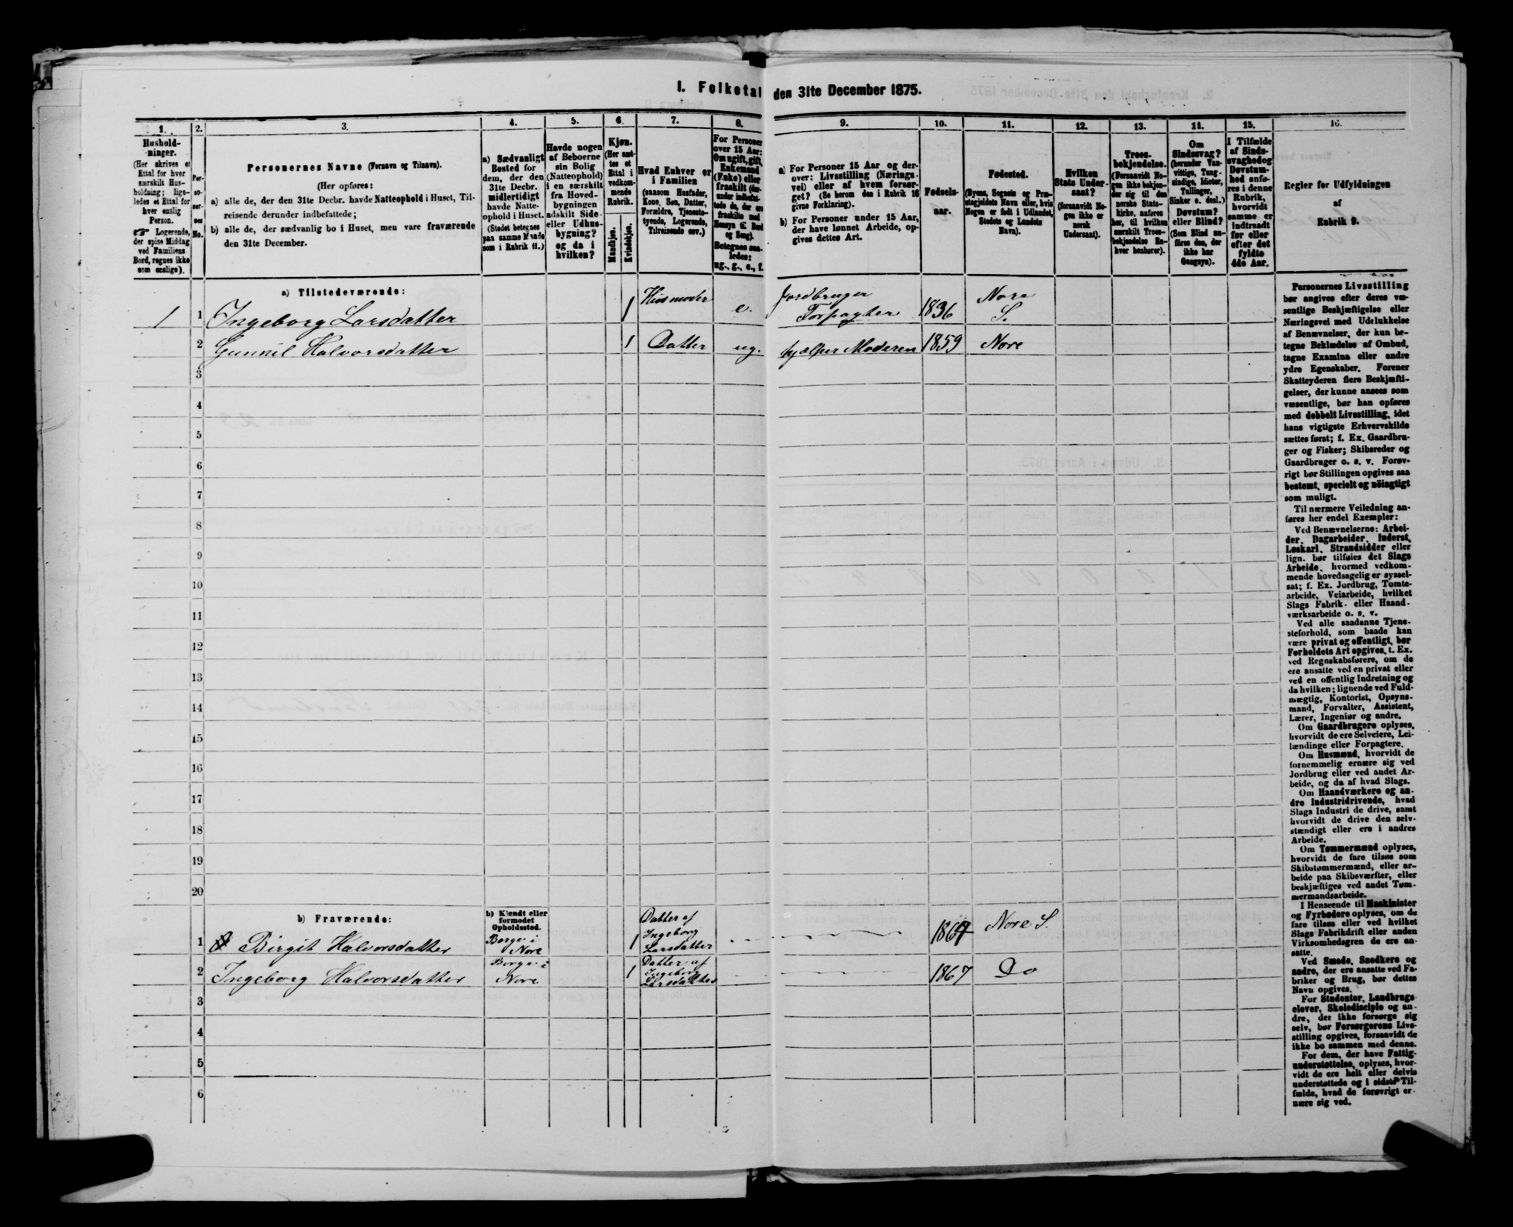 I. Folketal den 31te December 1875.
1. 2. 3. 4. 5. 6. 7. 8. 9. 10. 11. 12. 13. 14. 15. 16.
Hushold-
ninger.
(Her skrives et
Ettal for hver
særskilt Hus-
holdning; lige-
ledes et Ettal for
hver enslig
Person.
☞ Logerende,
der spise Middag
ved Familiens
Bord, regnes ikke
som enslige).
Per-
so-
ner-
nes
No.
Personernes Navne (Fornavn og Tilnavn).
(Her opføres:
a) alle de, der den 31te Decbr. havde Natteophold i Huset, Til-
reisende derunder indbefattede;
b) alle de, der sædvanlig bo i Huset, men vare fraværende
den 31te December.
a) Sædvanligt
Bosted for
dem, der den
31te Decbr.
midlertidigt
havde Natte-
ophold i Huset.
(Stedet betegnes
paa samme Maade
som i Rubrik 11.)
Havde nogen
af Beboerne
sin Bolig
(Natteophold)
i en særskilt
fra Hoved-
bygningen
adskilt Side-
eller Udhus-
bygning?
og da i
hvilken?
Kjøn.
(Her sæt-
tes et
Ettal i
vedkom-
mende
Rubrik.
Mandkjøn.
Kvindekjøn.
Hvad Enhver er
i Familien
(saasom Husfader,
Kone, Søn, Datter,
Forældre, Tjeneste-
tyende, Logerende,
Tilreisende osv.)
For Personer
over 15 Aar:
Om ugift, gift,
Enkemand
(Enke) eller
fraskilt
Betegnes saa-
ledes:
ug., g., e., f.
a) For Personer 15 Aar og der-
over: Livsstilling (Nærings-
vei) eller af hvem forsør-
get? (Se herom den i Rubrik 16
givne Forklaring).
b) For Personer under 15 Aar,
der have lønnet Arbeide, op-
gives dettes Art.
Fødsels-
aar.
Fødested.
(Byens, Sognets og Præ-
stegjeldets Navn eller, hvis
Nogen er født i Udlandet,
Stedets og Landets
Navn).
Hvilken
Stats Under-
saat?
(forsaavidt No-
gen ikke er
norsk
Undersaat).
Troes-
bekjendelse.
(Forsaavidt No-
gen ikke bekjen-
der sig til den
norske Stats-
kirke, anføres
her, til hvilken
særskilt Troes-
bekjendelse En-
hver henhører).
Om
Sindssvag?
(herunder Van-
vittige, Tung-
sindige, Idioter,
Tullinger,
Sinker o. desl.)
Døvstum?
eller Blind?
(Som Blind an-
føres den, der
ikke har
Gangsyn).
I Tilfælde
af Sinds-
svaghed og
Døvstum-
hed anfø-
res i denne
Rubrik,
hvorvidt
samme er
indtraadt
før eller
efter det
fyldte
4de Aar.
Regler for Udfyldningen
af
Rubrik 9.
a) Tilstedeværende:
1 1 Ingeborg Larsdatter 1 Husmoder e. Jordbruger Forpagter 1836 Nore S.
2 Gunnil Halvorsdatter 1 Datter ug. hjælper Moderen 1859 Nore
3
4
5
6
7
8
9
10
11
12
13
14
15
16
17
18
19
20
b) Fraværende:
b) Kjendt eller
formodet
Opholdssted.
1 Birgit Halvorsdatter Borge i Nore 1 Datter af Ingeborg Larsdatter Nore S.
2 Ingeborg Halvorsdatter Borge i Nore 1 Datter af Ingeborg Larsdatter 1867 Do
3
4
5
6
Personernes Livsstilling
bør angives efter deres væ-
sentlige Beskjæftigelse eller
Næringsvei med Udelukkelse
af Benævnelser, der kun be-
tegne Beklædelse af Ombud,
tagne Examina eller andre
ydre Egenskaber. Forener
Skatteyderen flere Beskjæfti-
gelser, der kunne ansees som
væsentlige, bør han opføres
med dobbelt Livsstilling, idet
hans vigtigste Erhvervskilde
sættes først; f. Ex. Gaardbru-
ger og Fisker; Skibsreder og
Gaardbruger o. s. v. Forøv-
rigt bør Stillingen opgives saa
bestemt, specielt og nöiagtigt
som muligt.
Til nærmere Veiledning an-
føres her endel Exempler:
Ved Benævnelserne: Arbei-
der, Dagarbeider, Inderst,
Løskarl, Strandsidder eller
lign. bør tilføies det Slags
Arbeide, hvormed vedkom-
mende hovedsagelig er syssel-
sat; f. Ex. Jordbrug, Tomte-
arbeide, Veiarbeide, hvilket
Slags Fabrik- eller Haand-
værksarbeide o. s. v.
Ved alle saadanne Tjene-
steforhold, som baade kan
være privat og offentligt, bør
Forholdets Art opgives, t. Ex.
ved Regnskabsførere, om de
ere ansatte ved en privat eller
ved en offentlig Indretning og
da hvilken; lignende ved Fuld-
mægtig, Kontorist, Opsyns-
mand, Forvalter, Assistent,
Lærer, Ingeniør og andre.
Om Gaardbrugere oplyses,
hvorvidt de ere Selveiere, Lei-
lændinge eller Forpagtere.
Om Husmænd, hvorvidt de
fornemmelig ernære sig ved
Jordbrug eller ved andet Ar-
beide, og da af hvad Slags.
Om Haandværkere og an-
dre Industridrivende, hvad
Slags Industri de drive, samt
hvorvidt de drive den selv-
stændigt eller ere i andres
Arbeide.
Om Tømmermænd oplyses,
hvorvidt de fare tilsøs som
Skibstømmermænd, eller ar-
beide paa Skibsværfter, eller
beskjæftiges ved andet Tøm-
mermandsarbeide.
I Henseende til Maskinister
og Fyrbødere oplyses, om de
fare tilsøs eller ved hvilket
Slags Fabrikdrift eller anden
Virksomhedsgren de ere an-
satte.
Ved Smede, Snedkere og
andre, der ere ansatte ved Fa-
briker og Brug, bør dettes
Navn opgives.
For Studenter, Landbrugs-
elever, Skoledisciple og an-
dre, der ikke forsørge sig
selv, bør Forsørgerens Livs-
stilling opgives, forsaavidt de
ikke bo sammen med denne.
For dem, der have Fattig-
understøttelse, oplyses, hvor-
vidt de ere helt eller delvis
understøttede og i sidste Til-
fælde, hvad de forøvrigt er-
nære sig ved.